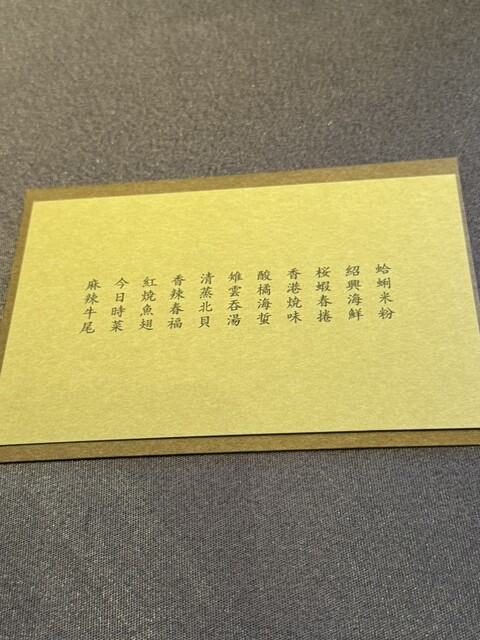 蛤蜊米粉
紹興海鮮
桜蝦春捲
香港焼味
酸橘海蜇
雉雲呑湯
清蒸北貝
香辣春福
紅焼魚翅
今日時菜
麻辣牛尾